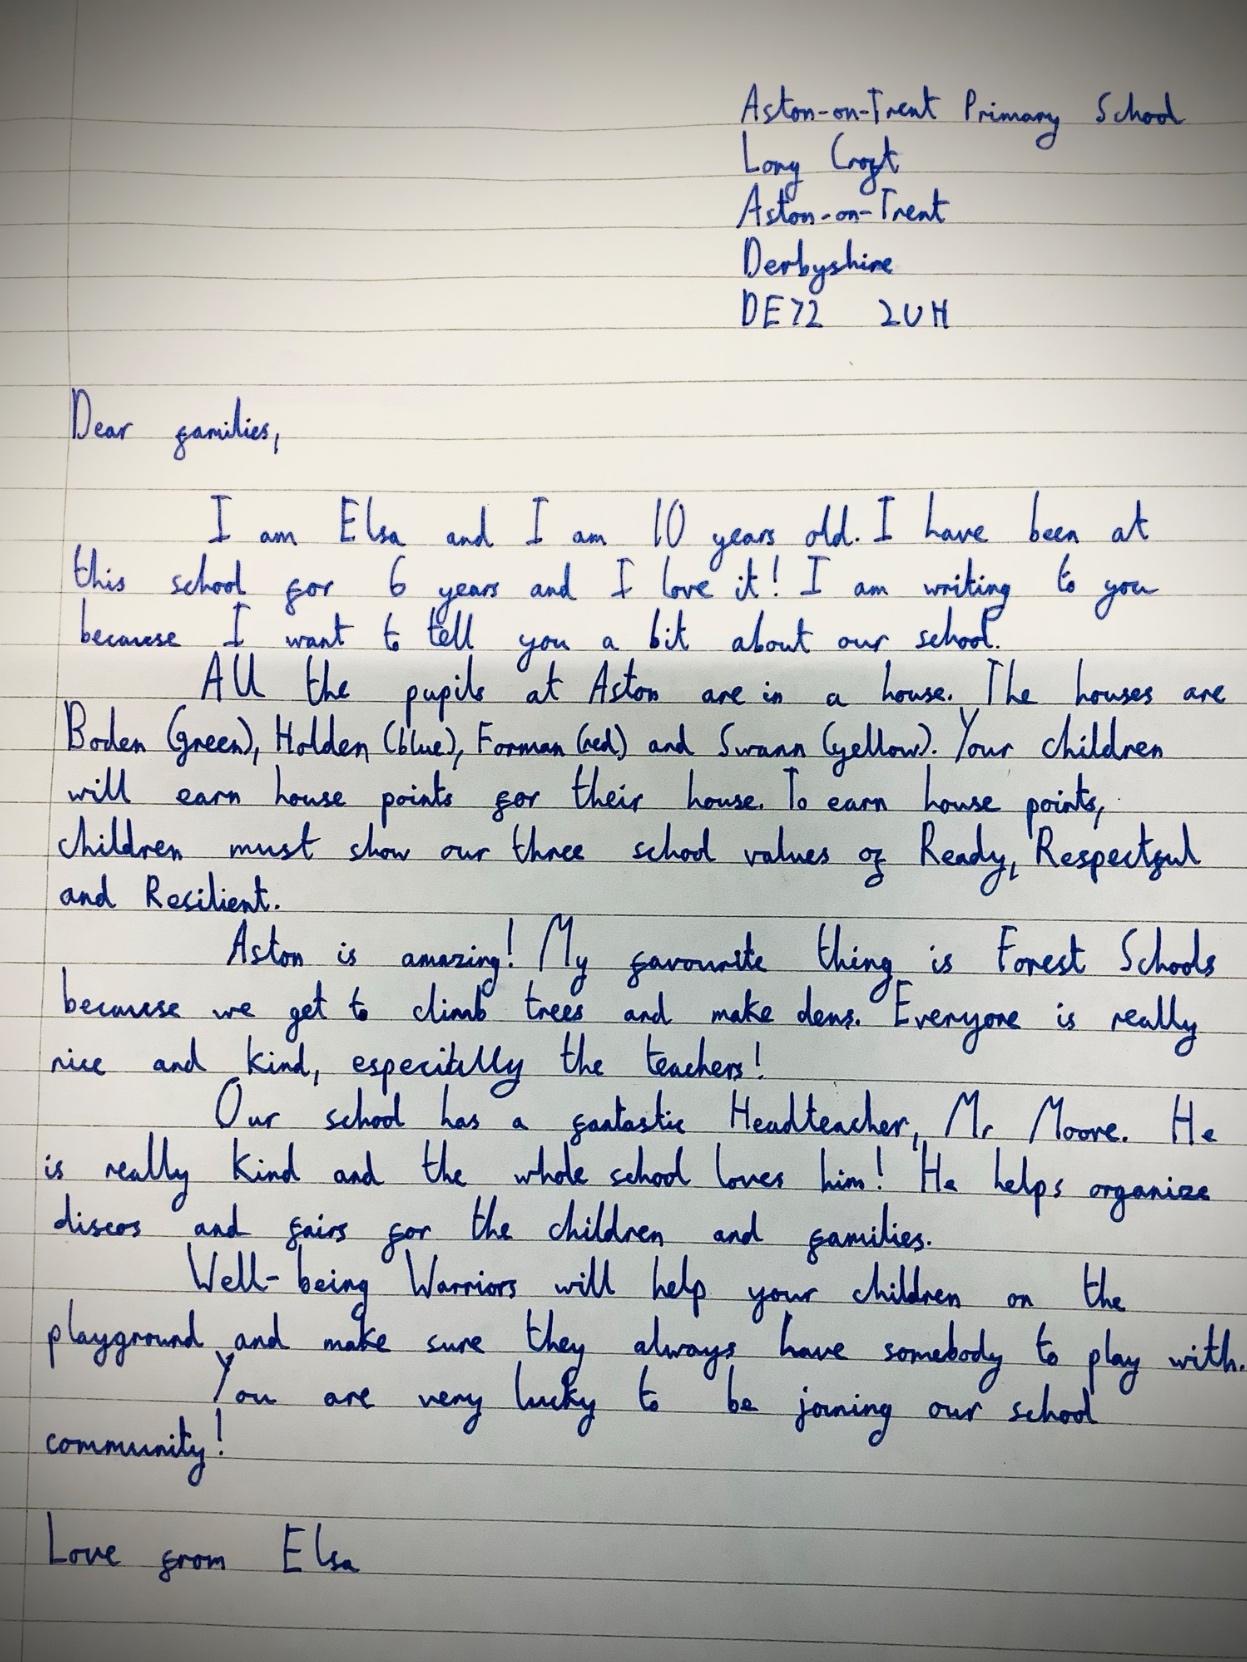 Aston-on-Trent Primary School
Long Croft
Aston-on-Trent
Derbyshire
DE72 2UH
Dear families,
I am Elsa and I am 10 years old. I have been at
this school for 6 years and I love it! I am writing to you
because I want to tell you a bit about our school.
All the pupils at Aston are in a house. The houses are
Boden (green), Holden (blue), Forman (red) and Swann (yellow). Your children
will earn house points for their house. To earn house points,
children must show our three school values of Ready, Respectful
and Resilient.
Aston is amazing! My favourite thing is Forest Schools
because we get to climb trees and make dens. Everyone is really
nice and kind, especially the teachers!
Our school has a fantastic Headteacher, Mr Moore. He
is really kind and the whole school loves him! He helps organize
discos and fairs for the children and families.
Well-being Warriors will help your children on the
playground and make sure they always have somebody to play with.
You are very lucky to be joining our school
community!
Love from Elsa